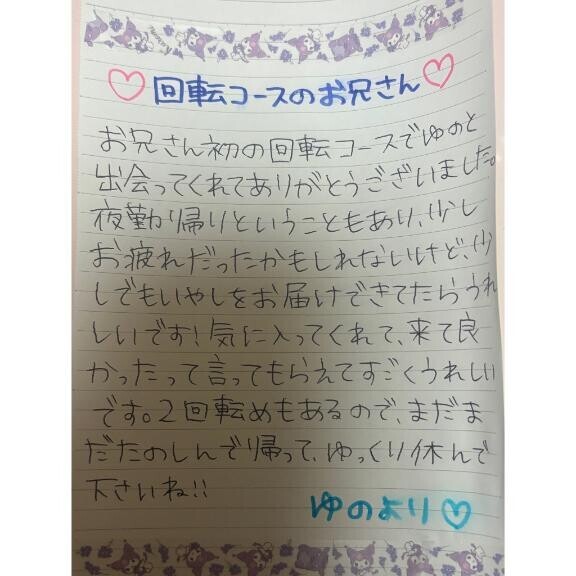 回転コースのお兄さん
お兄さん初の回転コースでゆのと
出会ってくれてありがとうございました。
夜勤帰りということもあり、少し
お疲れだったかもしれないけど、少
しでもいやしをお届けできてたらうれ
しいです！気に入ってくれて、来て良
かったって言ってもらえてすごくうれしい
です。２回転めもあるので、まだま
だたのしんで帰って、ゆっくり休んで
下さいね!!
ゆのより